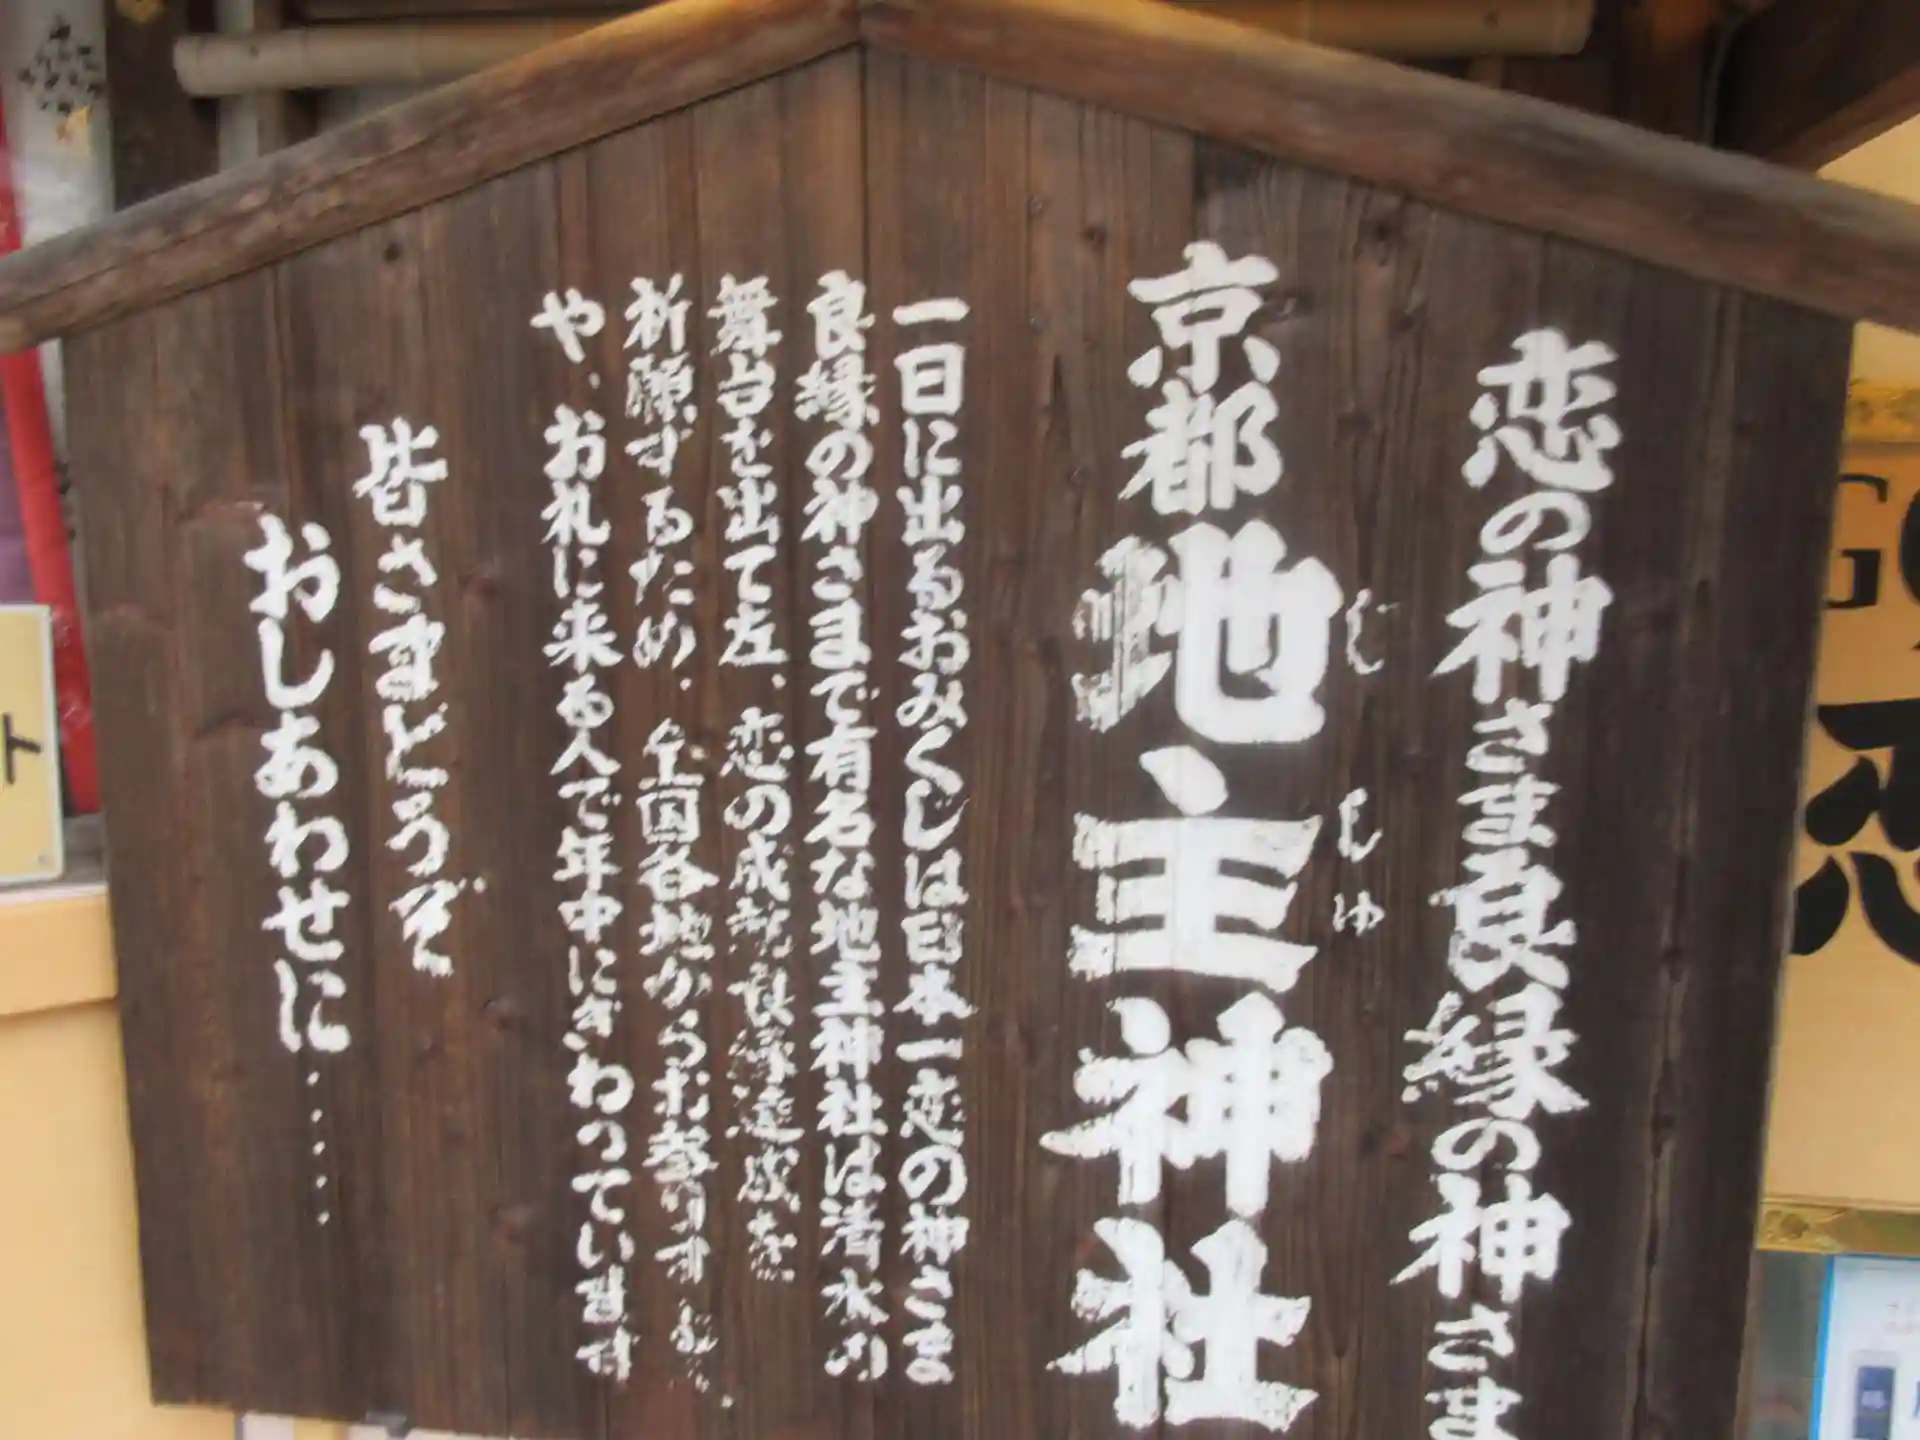 恋の神さま良縁の神さま
京都地主神社
じしゅ
一日に出るおみくじは日本一恋の神さま
良縁の神さまで有名な地主神社は清水の
舞台を出て左、恋の成就良縁達成を
祈願するため、全国各地からお参りする
や、お札に来る人で年中にぎわっています
皆さまどうぞ
おしあわせに・・・・
ト